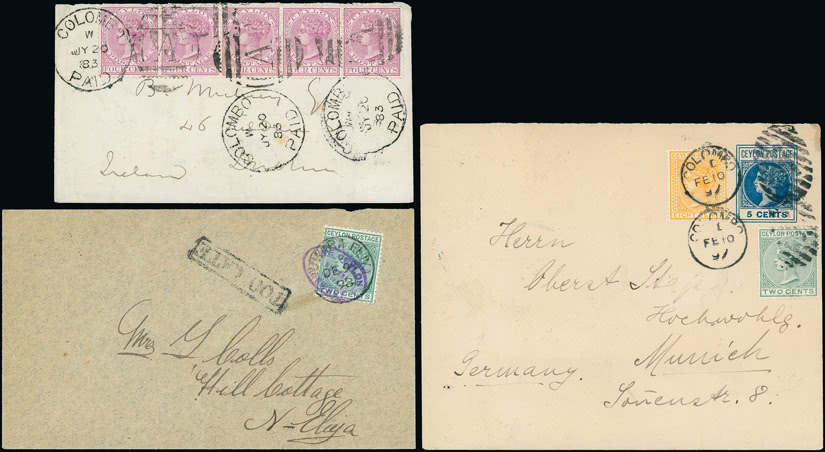 COLOMBO
W
JY 20
83
PAID
CEYLON
FOUR CENTS
FOUR CENTS
FOUR CENTS
FOUR CENTS
COLOMBO
W
JY 20
83
PAID
COLOMBO
JY 20
83
PAID
46
Ireland
TOO LATE
CEYLON POSTAGE
CEYLON
TWO CENTS
Mrs Y Colls
Hill Cottage
N-Eliya
COLOMBO
1
FE 10
97
COLOMBO
1
FE 10
97
EIGHT
CEYLON POSTAGE
5 CENTS
CEYLON POSTAGE
TWO CENTS
Herrn
Oberst
Hochwohlg.
Munich
Germany.
Sonnenstr. 8.